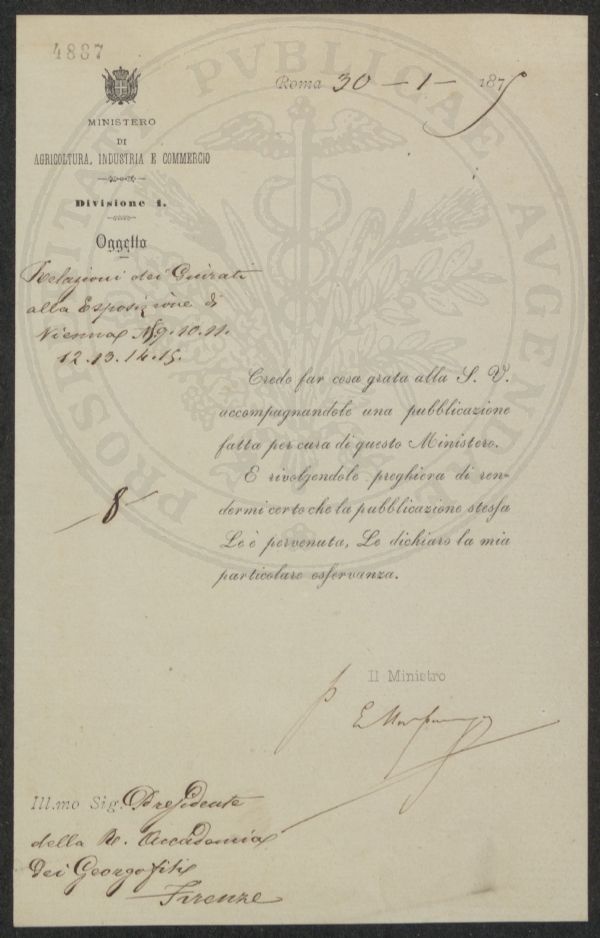 4887
Roma 30 - 1 - 1875
MINISTERO
DI
AGRICOLTURA, INDUSTRIA E COMMERCIO
Divisione 1.
Oggetto
Relazioni dei Giurati
alla Esposizione di
Vienna N. 9. 10. 11.
12. 13. 14. 15.
Credo far cosa grata alla S. V.
accompagnandole una pubblicazione
fatta per cura di questo Ministero.
E rivolgendole preghiera di ren-
dermi certo che la pubblicazione stessa
Le è pervenuta, Le dichiaro la mia
particolare osservanza.
8
Il Ministro
p
Ill.mo Sig. Presidente
della R. Accademia
dei Georgofili
Firenze
PROSPERITATI PVBLICAE AVGENDAE